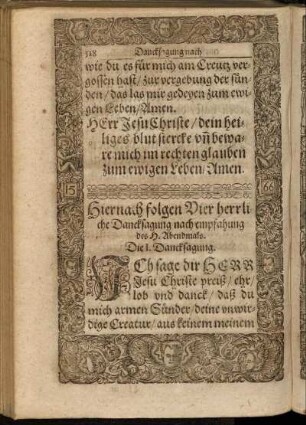 328 Dancksagung nach
wie du es für mich am Creutz ver
gossen hast / zur vergebung der sün
den / das las mir gedeyen zum ewi
gen Leben / Amen.
HErr Jesu Christe / dein hei-
liges blut stercke vñ bewa-
re mich im rechten glauben
zum ewigen Leben / Amen.
15 66
Hiernach folgen Vier herrli
che Dancksagung nach empfahung
des H. Abendmals.
Die 1. Dancksagung.
ICh sage dir HERR
Jesu Christe preiß / ehr /
lob vnd danck / daß du
mich armen Sünder / deine vnwir-
dige Creatur / aus keinem meinem